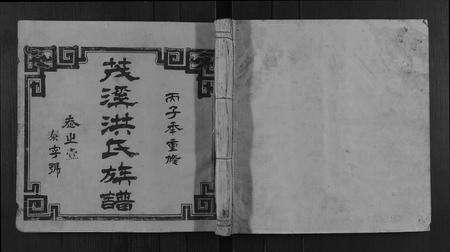 丙子季重修
茂溪洪氏族譜
卷之壹
字號